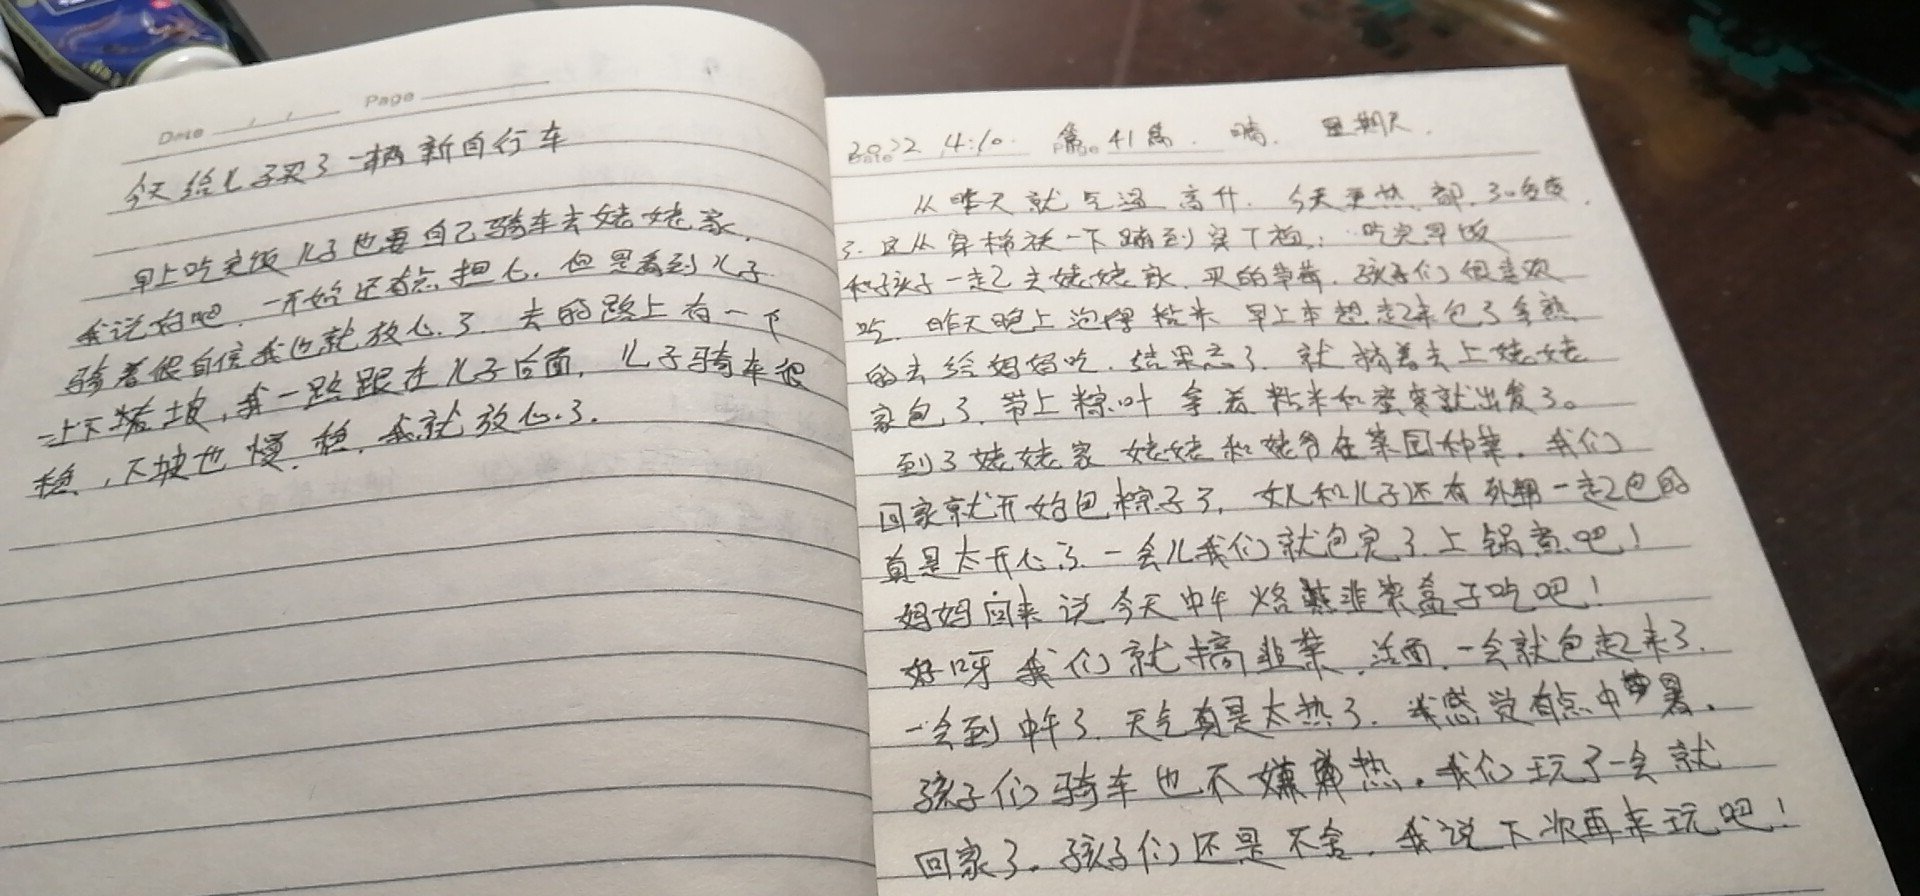 Date / / Page
今天给儿子买了一辆新自行车
早上吃完饭儿子也要自己骑车去姥姥家.
我说好吧.一开始还有点担心.但是看到儿子
骑着很自信我也就放心了.去的路上有一个
上下坡,我一路跟在儿子后面,儿子骑车很
稳.,下坡也慢.稳.我就放心了.
2022 4.10. 第41篇. 晴. 星期天.
Date Page
从昨天就气温高升.今天更热.都30多度.
了.这从穿棉袄一下蹦到穿T恤;吃完早饭
和孩子一起去姥姥家.买的草莓.孩子们很喜欢
吃.昨天晚上泡得粘米早上本想起来包了拿熟
的去给妈妈吃.结果忘了.就拿着去上姥姥
家包了.带上粽叶拿着粘米和蜜枣就出发了。
到了姥姥家姥姥和姥爷在菜园种菜.我们
回家就开始包粽子了,女儿和儿子还有外甥一起包的
真是太开心了.一会儿我们就包完了.上锅煮吧!
妈妈回来说今天中午烙韭菜盒子吃吧!
好呀我们就搞韭菜.活面.一会就包起来了.
一会到中午了.天气真是太热了.我感觉有点中暑.
孩子们骑车也不嫌热.我们玩了一会就
回家了.孩子们还是不舍.我说下次再来玩吧!